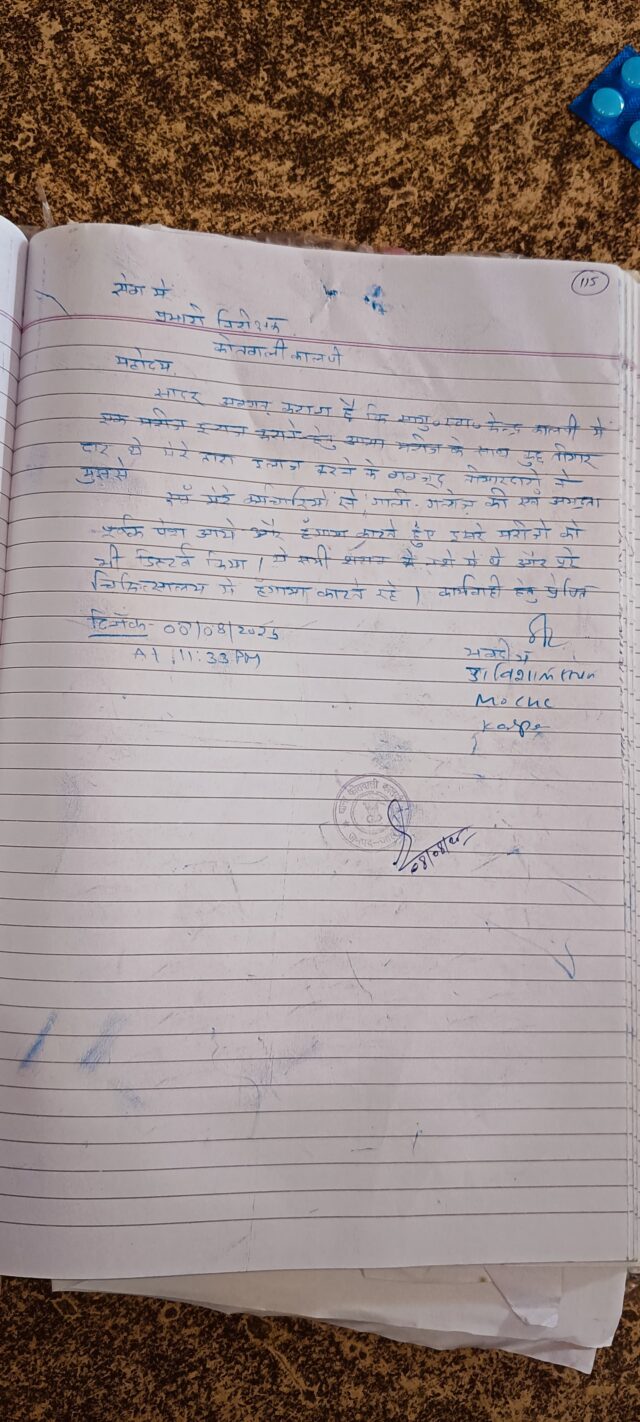 115
सेवा में
प्रभारी निरीक्षक
कोतवाली कालपी
महोदय
सादर अवगत कराना है कि सामु० स्वा० केन्द्र कालपी में
एक मरीज इलाज कराने हेतु आया मरीज के साथ कुछ तीमार
दार थे मेरे द्वारा इलाज करने के बावजूद तीमारदारों ने
मुझसे
एवं मेरे कर्मचारियों से गाली-गलौज की एवं अभद्रता
पूर्वक पेश आये और हंगामा करते हुए दूसरे मरीजों को
भी डिस्टर्ब किया। ये सभी शराब के नशे में थे और पूरे
चिकित्सालय में हंगामा काटते रहे। कार्यवाही हेतु प्रेषित
दिनाँक 08/08/2025
At 11:33 PM
भवदीय
डा विशाल
MOCHC
Kalpi
08/08/25